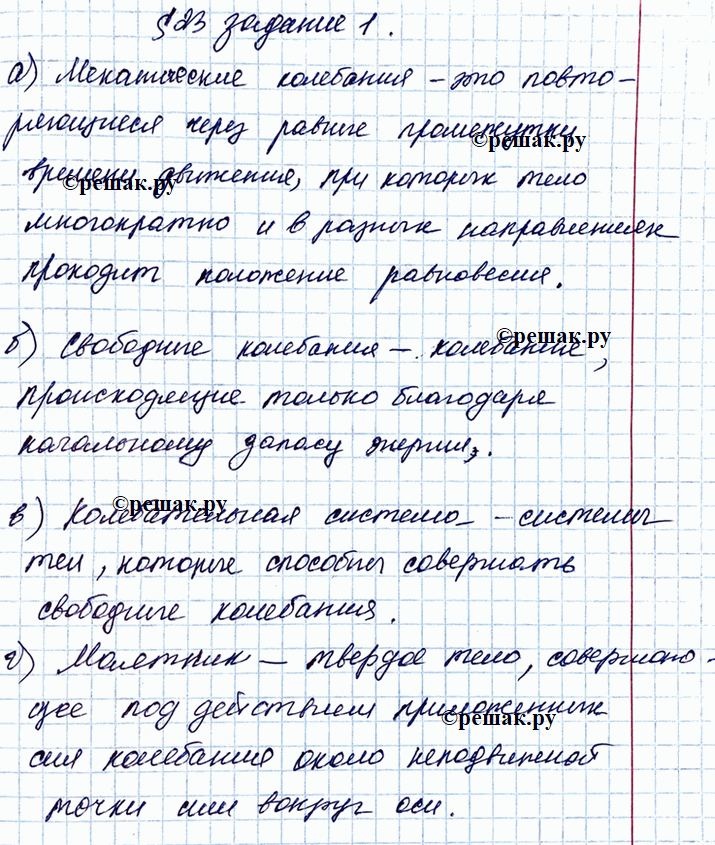 §23 задание 1.
а) Механические колебания – это повто-
ряющиеся через равные промежутки
©решак.ру
времени движения, при которых тело
©решак.ру
многократно и в разных направлениях
проходит положение равновесия.
©решак.ру
б) Свободные колебания – колебание,
происходящие только благодаря
начальному запасу энергии.
©решак.ру
в) Колебательная система – системы
тел, которые способны совершать
свободные колебания.
г) Маятник – твердое тело, совершаю-
щее под действием приложенных
©решак.ру
сил колебания около неподвижной
точки или вокруг оси.